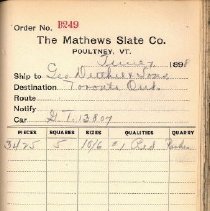 Order No. B249
The Mathews Slate Co.
POULTNEY, VT.
June 7 1898
Ship to Geo Duthie & Sons
Destination Toronto Ont.
Route
Notify
Car G.T. 13807
PIECES SQUARES SIZES QUALITIES QUARRY
3425 5 10/6 #1 Red